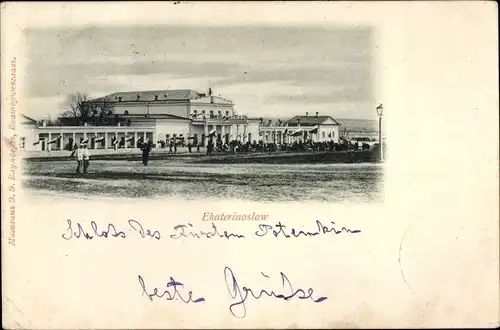 Ekaterinoslaw
Schloss des Fürsten Potemkin
beste Grüsse
Магазинъ
Екатеринославъ.